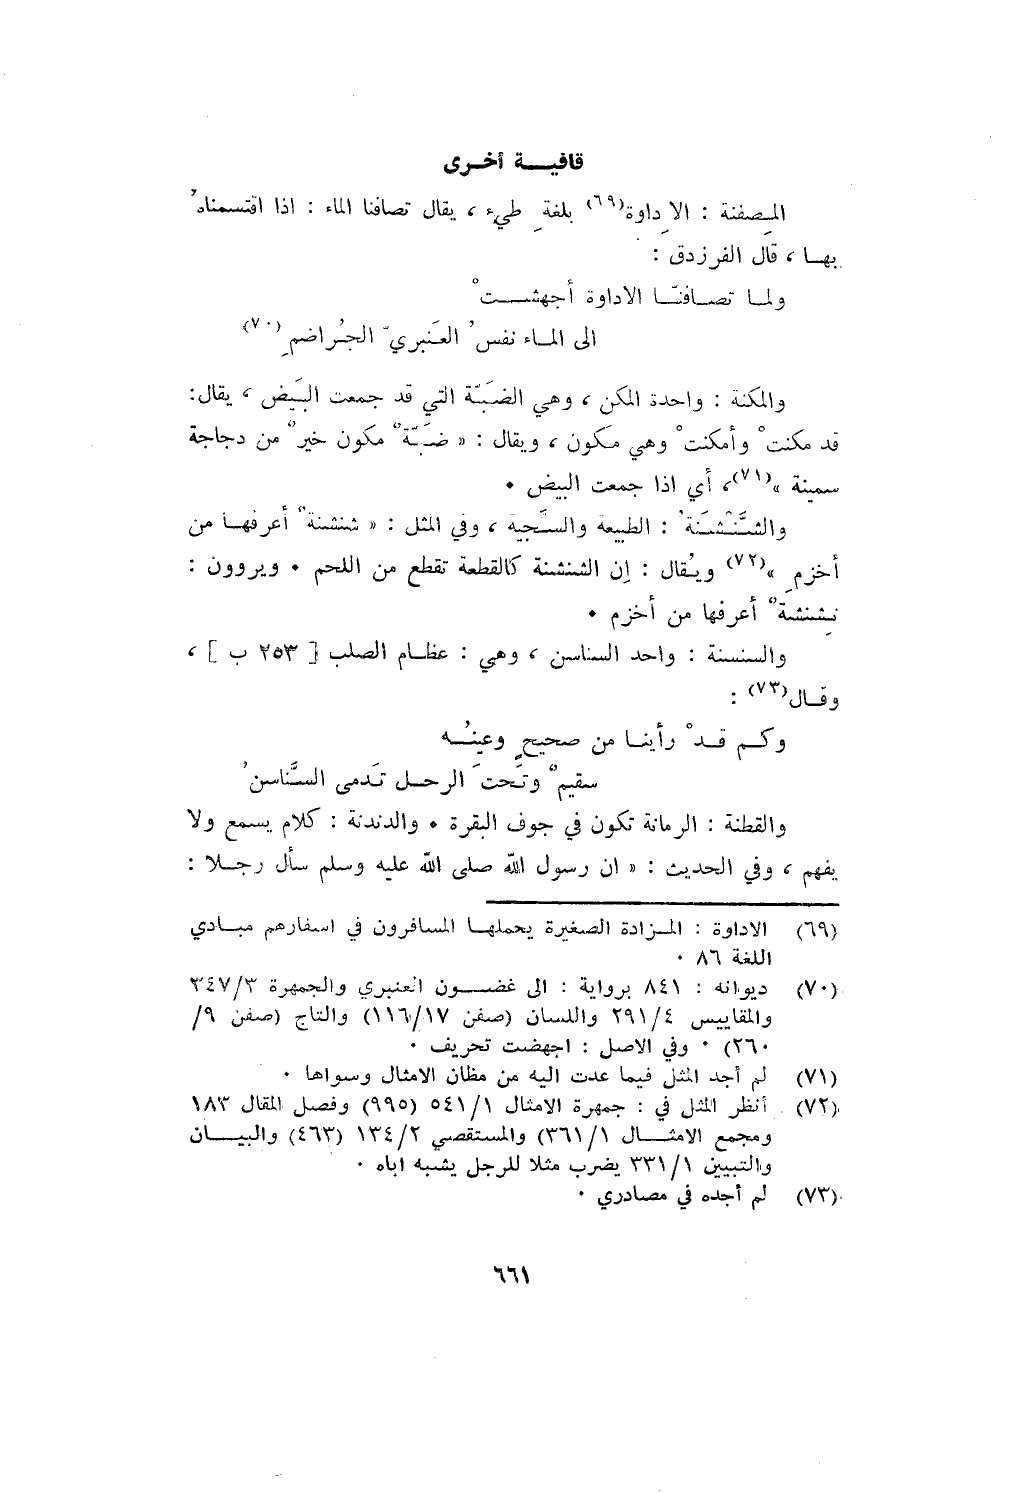 قافيـــة أخـرى
المِصفنة : الاِداوة(٦٩) بلغةِ طيء ، يقال تصافنا الماء : اذا اقتسمناهُ
بهـا ، قال الفرزدق :
ولمـا تصـافنّـا الاداوة أجهشـــتْ
الى المـاء نفسُ العَنبريّ الجُراضمِ(٧٠)
والمكنة : واحدة المكن ، وهي الضَبّة التي قد جمعت البَيض ، يقال:
قد مكنتْ وأمكنتْ وهي مَكون ، ويقال : « ضَبّةٌ مكون خيرٌ من دجاجة
سمينة »(٧١)، أي اذا جمعت البيض ٠
والشَّنْشَنَةُ : الطبيعة والسَّجية ، وفي المثل : « شنشنةٌ أعرفهـا من
أخزمِ »(٧٢) ويُقال : إن الشنشنة كالقطعة تقطع من اللحم ٠ ويروون :
نِشنشةٌ أعرفها من أخزم ٠
والسنسنة : واحد السناسن ، وهي : عظـام الصلب [ ٢٥٣ ب ] ،
وقـال(٧٣) :
وكـم قـدْ رأينـا من صحيحٍ وعينُـه
سقيمٌ وتَحتَ الرحـل تَدمى السَّناسنُ
والقطنة : الرمانة تكون في جوف البقرة ٠ والدندنة : كلام يسمع ولا
يفهم ، وفي الحديث : « ان رسول الله صلى الله عليه وسلم سأل رجـلا :
(٦٩) الاداوة : المـزادة الصغيرة يحملهـا المسافرون في اسفارهم مبـادي
اللغة ٨٦ ٠
(٧٠) ديوانه : ٨٤١ برواية : الى غضــون العنبري والجمهرة ٣٤٧/٣
والمقاييس ٢٩١/٤ واللسان (صفن ١١٦/١٧) والتاج (صفن ٩/
٢٦٠) ٠ وفي الاصل : اجهضت تحريف ٠
(٧١) لم أجد المثل فيما عدت اليه من مظان الامثال وسواها ٠
(٧٢) أنظر المثل في : جمهرة الامثال ٥٤١/١ (٩٩٥) وفصل المقال ١٨٣
ومجمع الامثــال ٣٦١/١) والمستقصي ١٣٤/٢ (٤٦٣) والبيـــان
والتبيين ٣٣١/١ يضرب مثلا للرجل يشبه اباه ٠
(٧٣) لم أجده في مصادري ٠
٦٦١